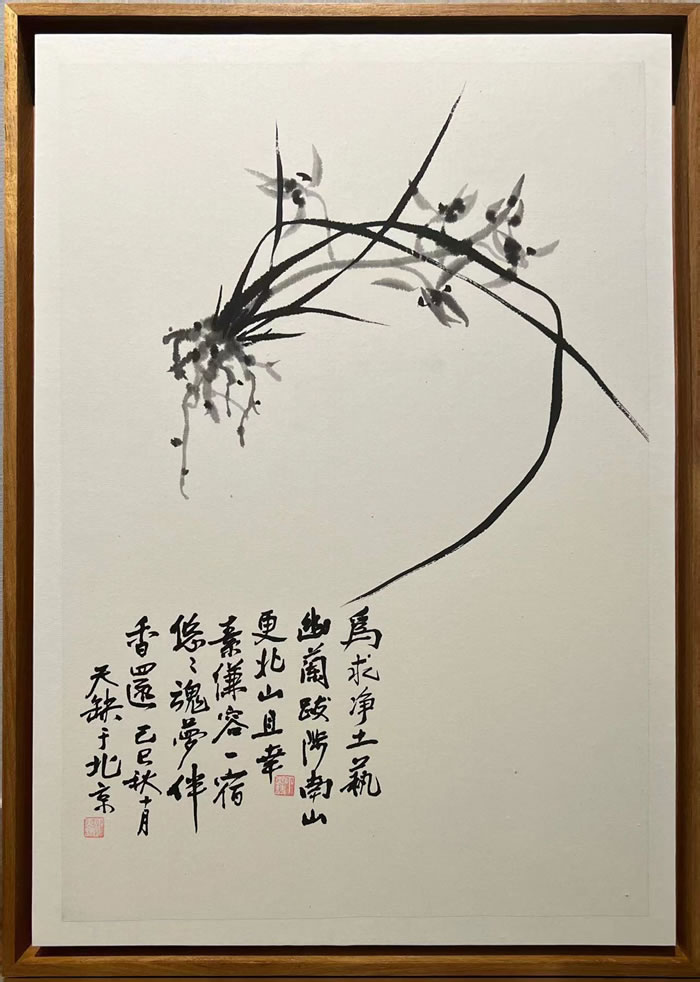 爲求净土藝
幽蘭跋涉南山
更北山且幸
素縑容一宿
悠〻魂夢伴
香還 己巳秋十月
天缺于北京